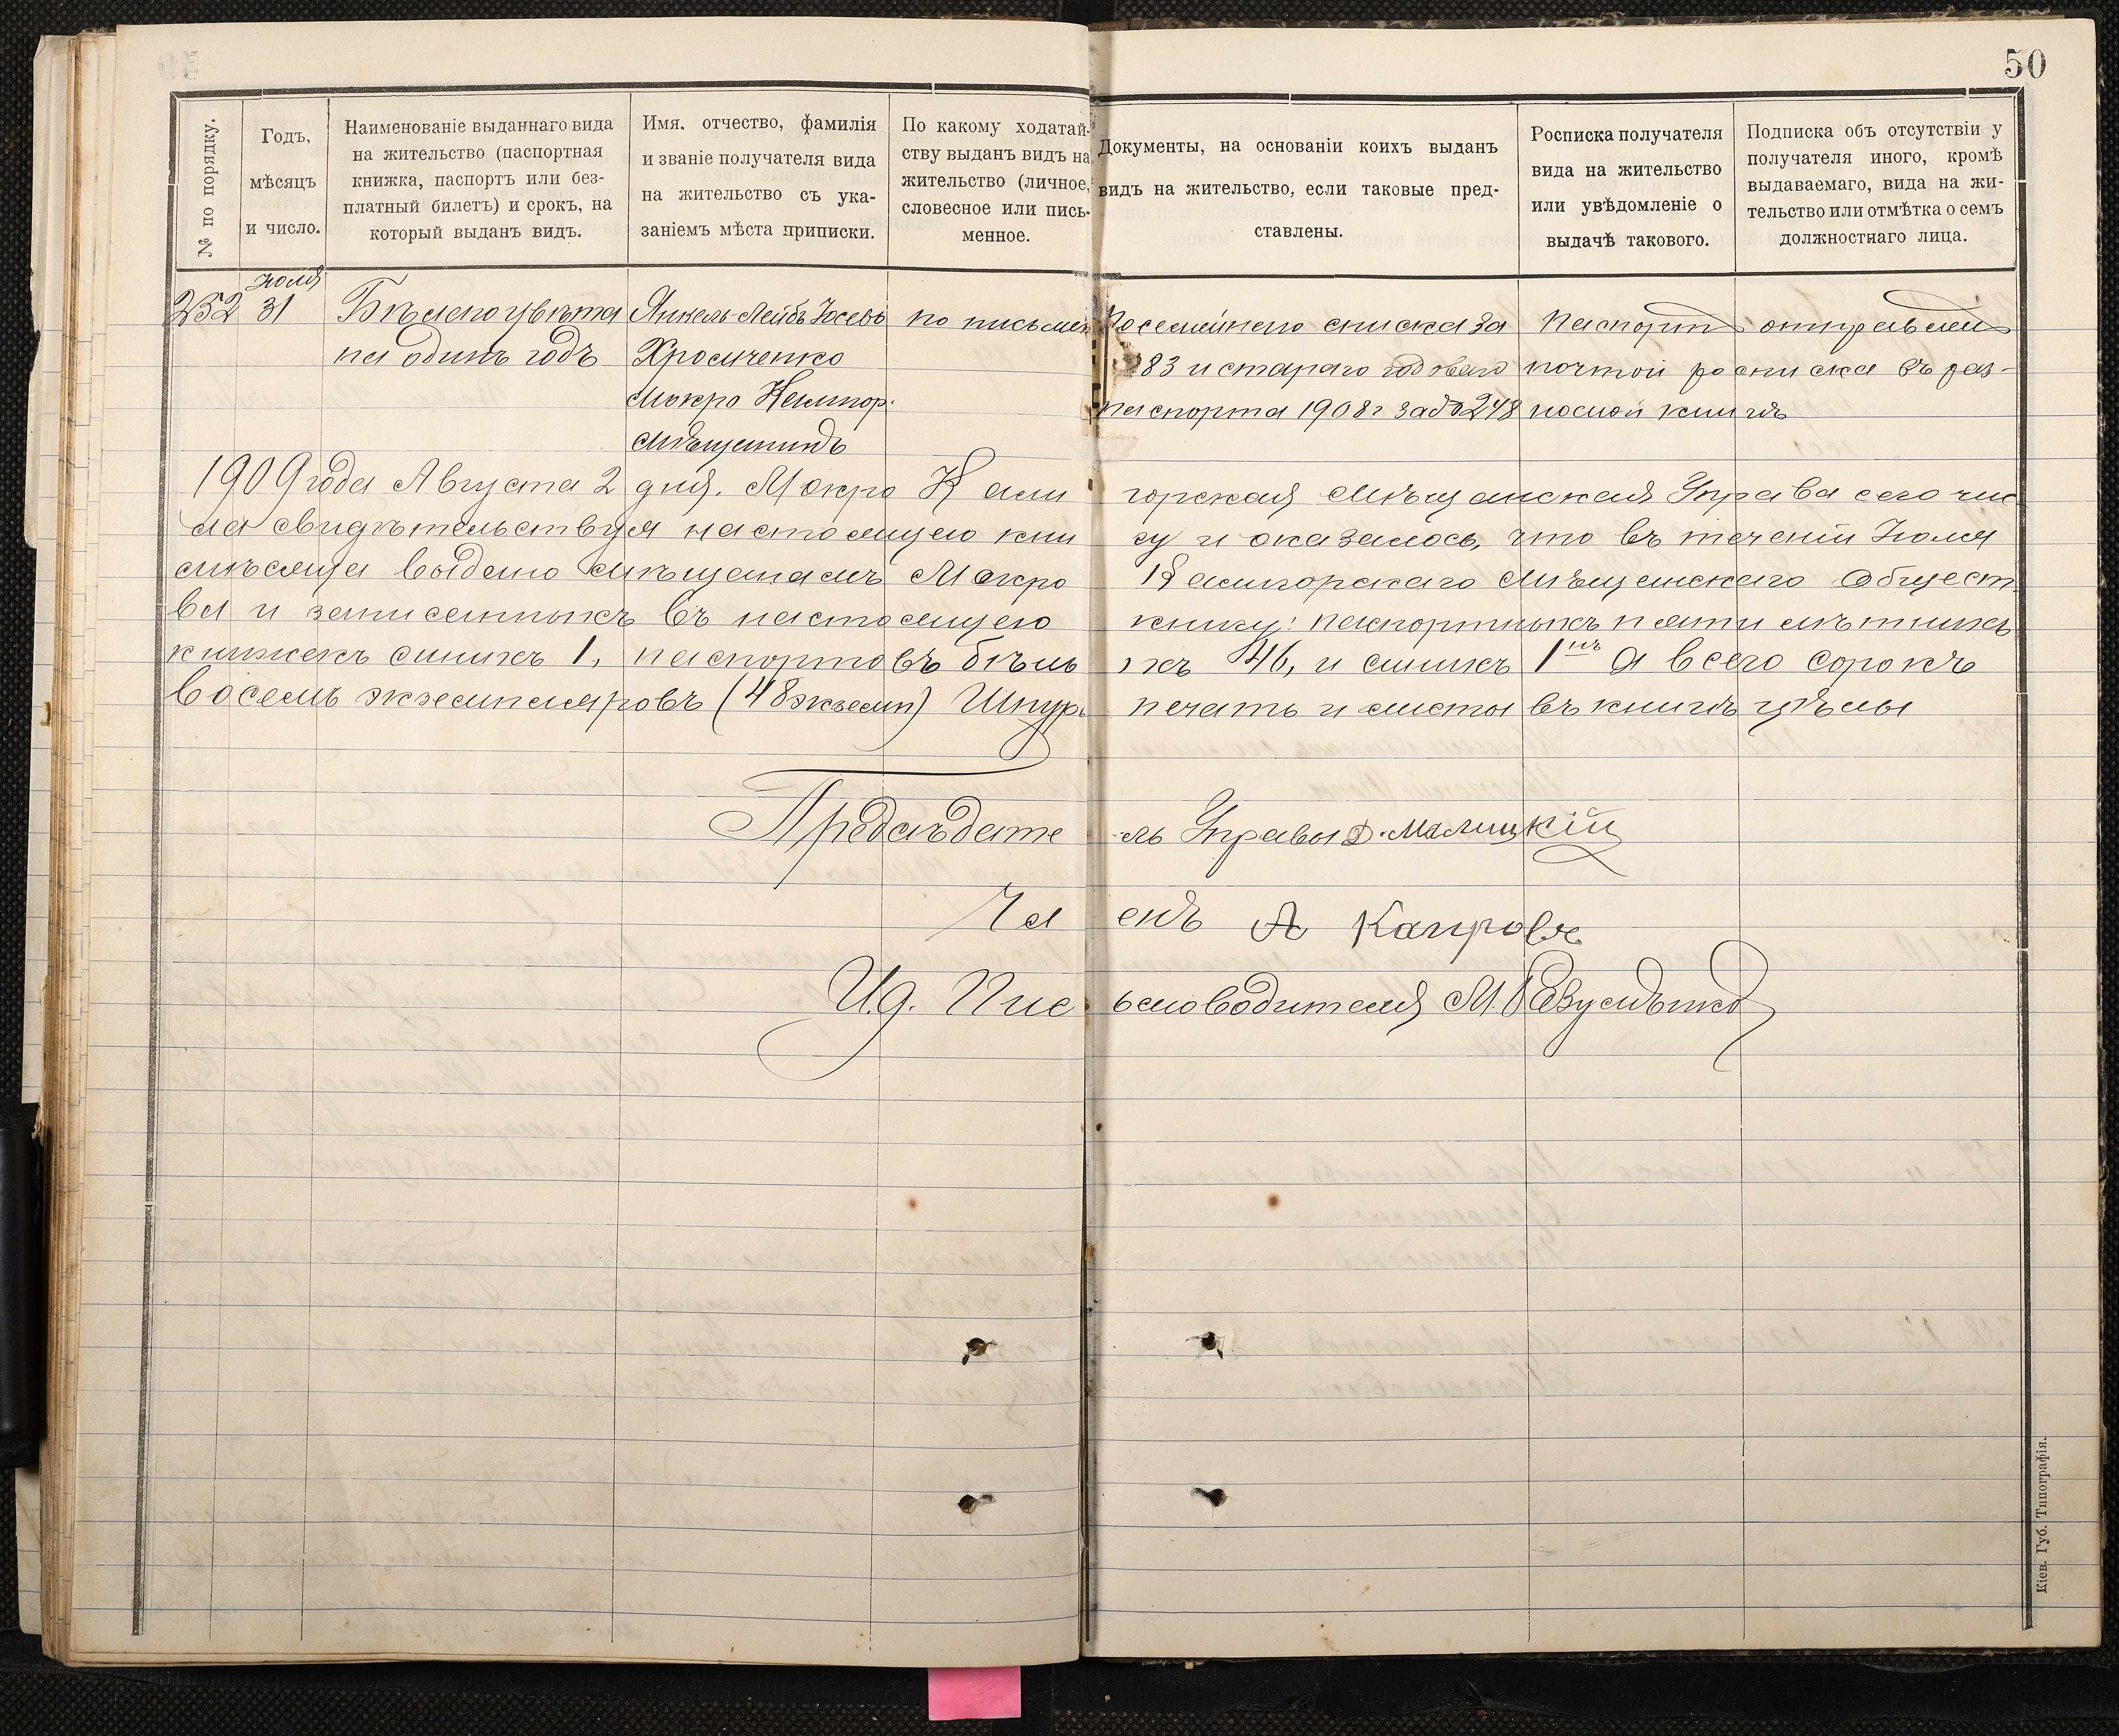 50
№ по порядку.
Годъ,
мѣсяцъ
и число.
Наименованіе выданнаго вида
на жительство (паспортная
книжка, паспортъ или без-
платный билетъ) и срокъ, на
который выданъ видъ.
Имя. отчество, фамилія
и званіе получателя вида
на жительство съ ука-
заніемъ мѣста приписки.
По какому ходатай-
ству выданъ видъ на
жительство (личное,
словесное или пись-
менное.
Документы, на основаніи коихъ выданъ
видъ на жительство, если таковые пред-
ставлены.
Росписка получателя
вида на жительство
или увѣдомленіе о
выдачѣ такового.
Подписка объ отсутствіи у
получателя иного, кромѣ
выдаваемаго, вида на жи-
тельство или отмѣтка о семъ
должностнаго лица.
Іюля
252 31
Бѣлаго цвѣта
на одинъ годъ
Янкель-Лейбъ Іосевъ
Хромченко
Мокро Калигор.
мѣщанинъ
по письмен
Посемейнаго списка за
83 и стараго годоваго
паспорта 1908 г за № 248
Паспортъ отправленъ
почтой росписка въ раз-
носной книгѣ
1909 года Августа 2 дня. Мокро Кали горская Мѣщанская Управа сего чис
ла свидѣтельствуя настоящую кни гу и оказалось, что въ теченіи Іюля
мѣсяца выдано мѣщанамъ Мокро Калигорскаго Мѣщанскаго Общест
ва и записанныхъ въ настоящую книгу: паспортныхъ пяти лѣтнихъ
книжекъ синихъ 1, паспортовъ бѣлы хъ 46, и синихъ 1нъ а всего сорокъ
восемь экземпляровъ (48 экземп) Шнуръ печать и листы въ книгѣ цѣлы
Предсѣдате ль Управы Д. Малицкій
Чл енъ А Капровъ
И.д. Пис ьмоводителя М.
Кіев. Губ. Типографія.